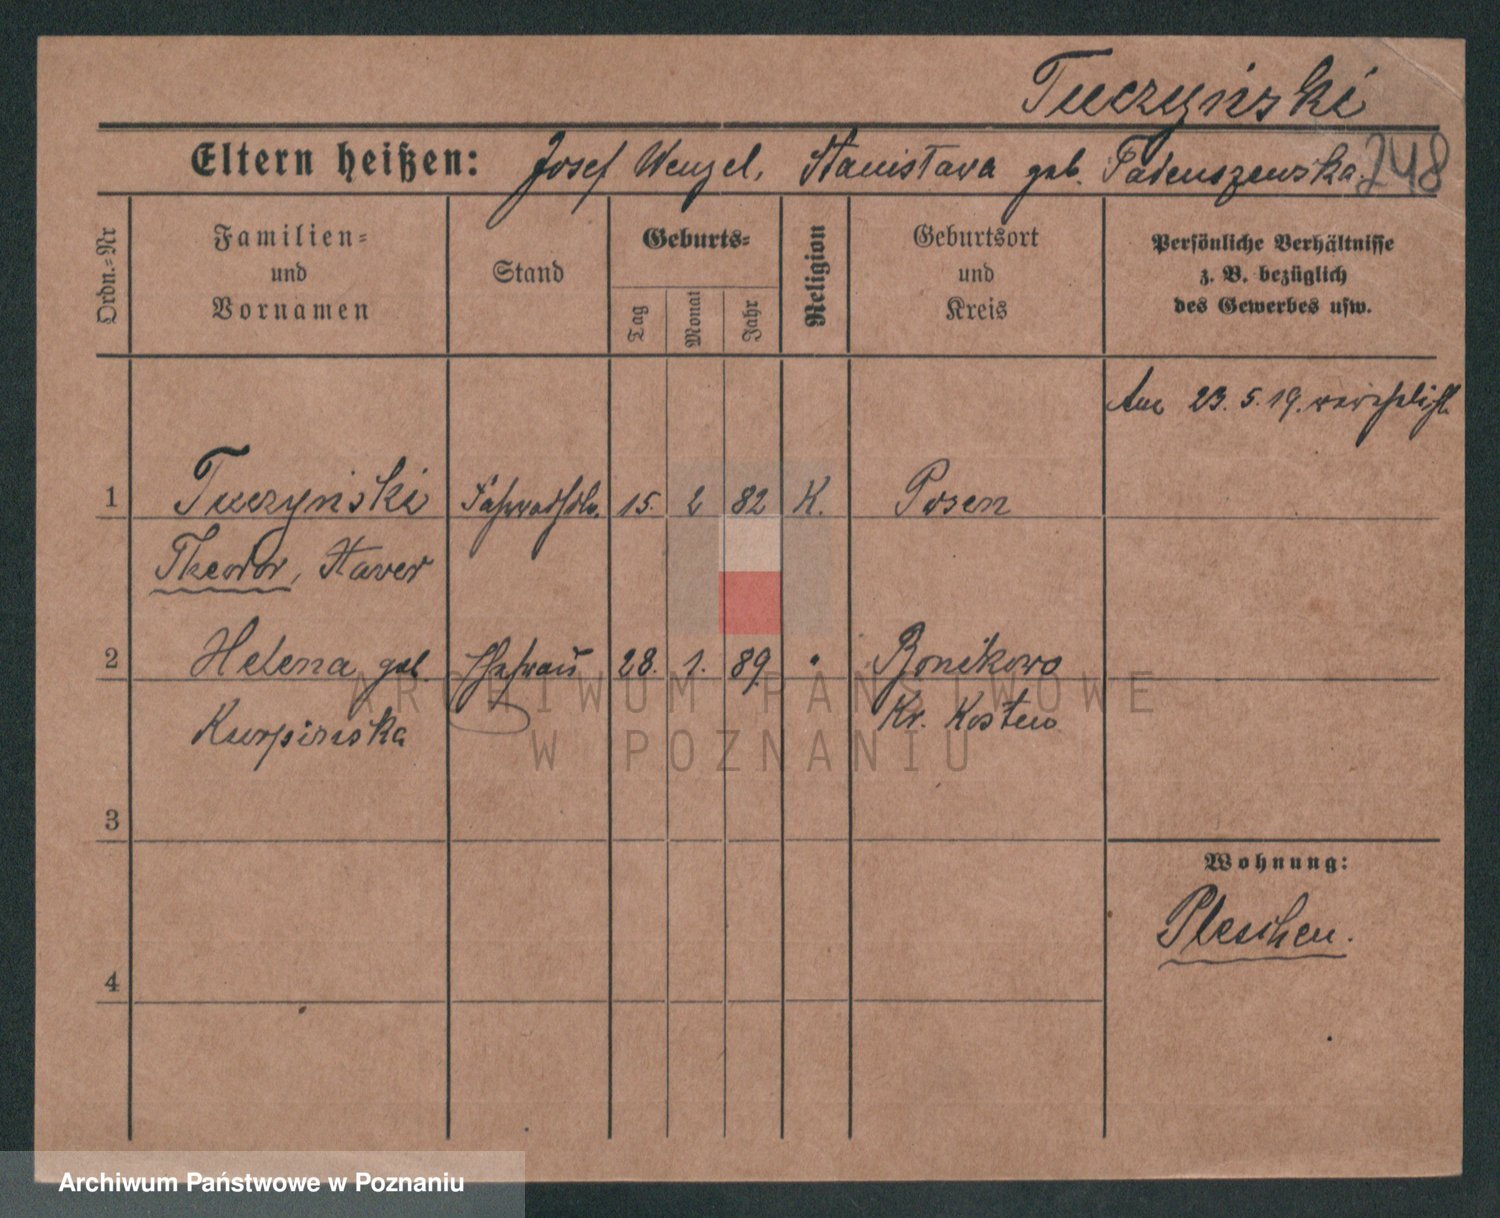 Tuczyński
Eltern heißen: Josef Wenzel, Stanislava geb. Fadenszewska. 248
Ordn.=Nr
Familien=
und
Vornamen
Stand
Geburts=
Tag
Monat
Jahr
Religion
Geburtsort
und
Kreis
Persönliche Verhältnisse
z. B. bezüglich
des Gewerbes usw.
Am 23. 5. 19. verehelicht
1 Tuczyński Fahrradhdlr. 15. 2 82 K. Posen
Theodor, Xaver
2 Helena geb. Ehefrau 28. 1. 89. " Bonikowo
Kurpinska Kr. Kosten
3
Wohnung:
Pleschen.
4
ARCHIWUM PAŃSTWOWE
W POZNANIU
Archiwum Państwowe w Poznaniu